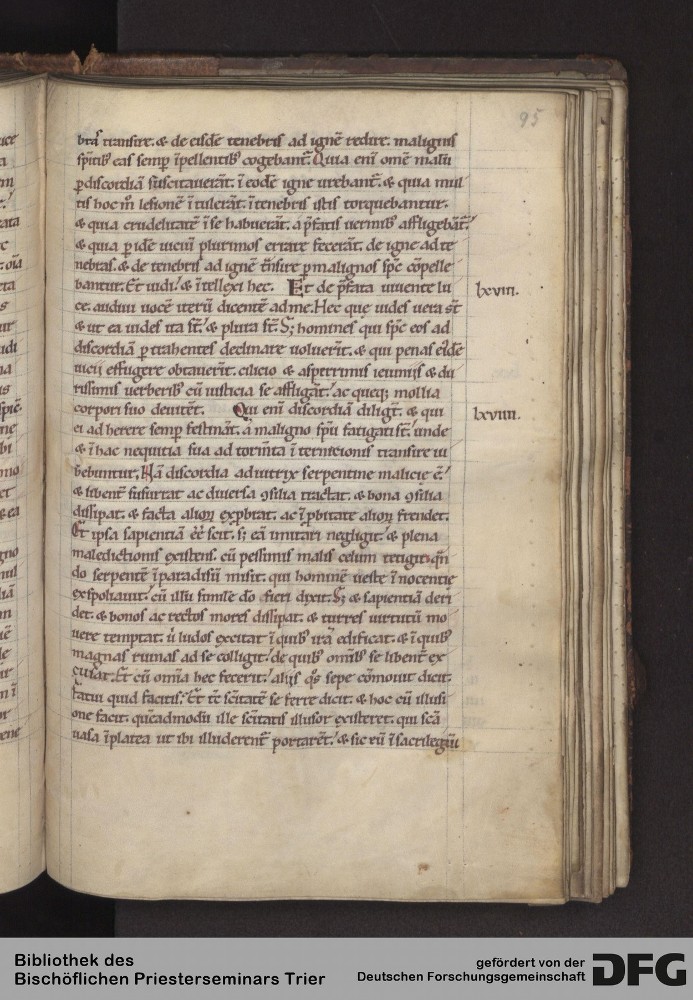 95
bras transire. & de eisdē tenebris ad ignē redire. malignis
spiritib; eas semp īpellentib; cogebant. Quia eni omē malū
p discordiā suscitauerāt. ī eodē igne urebant. & quia mul
tis hoc m̄ lesionē ītulerāt. ī tenebris istis torquebantur.
& quia crudelitatē ī se habuerāt. a p̄fatis uermib; affligebāt.
& quia p idē uiciū plurimos errare fecerāt. de igne ad te
nebras. & de tenebris ad ignē t̄nsire p malignos sp̄c cōpelle
bantur. Et uidi. & ītellexi hec. Et de p̄fata uiuente lu
lxviii.
ce. audiui uocē iterū dicentē ad me. Hec que uides uera st̄
& ut ea uides ita st̄. & plura st̄. S; homines qui sp̄c eos ad
discordiā p trahentes declinare uoluerīt. & qui penas ei'dē
uicii effugere obtauerīt. cilicio & asperrimis ieiuniis & du
rissimis uerberib; cū iusticia se affligāt. ac queq; mollia
corpori suo deuitēt. Qui eni discordiā diligt̄. & qui
lxviiii.
ei ad herere semp festināt. a maligno sp̄u fatigati st̄. unde
& ī hac nequitia sua ad torm̄ta ī ternicionis transire iu
bebuntur. Nā discordia adiutrix serpentine malicie ē.
& libent̄ susurrat ac diuersa 9silia tractat. & bona 9silia
dissipat. & facta alioꝝ exp̄brat. ac ī p̄bitate alioꝝ frendet.
Et ipsa sapientiā ēē scit. s; eā imitari negligit. & plena
maledictionis existens. cū pessimis malis celum tetigit. qn̄
do serpentē ī paradisū misit. qui hominē ueste īnocentie
exspoliauit. cū illū similē dō fieri dixit. S; & sapientiā deri
det. & bonos ac rectos mores dissipat. & turres uirtutū mo
uere temptat. ū ludos excitat ī quib; irā edificat. & ī quib;
magnas ruinas ad se colligit. de quib; omīb; se libent̄ ex
cusat. Et cū omīa hec fecerit. alijs q̊s sepe cōmouit dicit.
fatui quid facitis. Et t̄c sc̄itatē se ferre dicit. & hoc cū illusi
one facit. quēadmodū ille sc̄itatis illusor existeret. qui scā
uasa ī platea ut ibi illuderent̄ portarēt. & sic eū ī sacrilegiū
Bibliothek des
Bischöflichen Priesterseminars Trier
gefördert von der
Deutschen Forschungsgemeinschaft
DFG